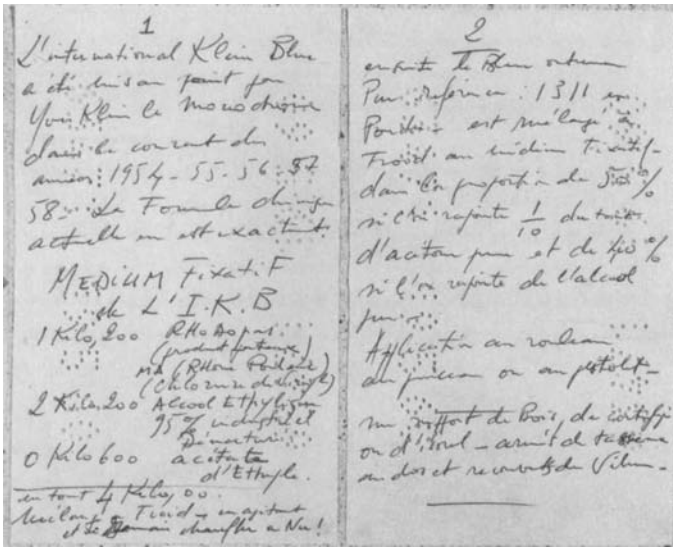 1
L'international Klein Blue
a été mis au point par
Yves Klein le monochrome
dans le courant des
années : 1954 - 55 - 56 - 57
58 - La Formule chimique
actuelle en est exactement
MEDIUM FixatiF
de L'I.K.B
1 Kilo, 200 RHodopas
(produit pateux)
MA (RHone Poulenc)
(Chlorure de vinyle)
2 Kilo, 200 Alcool EtHylique
95% industriel
Dénaturé
0 Kilo 600 acétate
d'Ethyle.
en tout 4 Kilo, 00.
Mélange à Froid - en agitant
et jamais chauffer à Nu !
2
ensuite le Bleu outremer
Pur référence : 1311 en
Poudre est mélangé à
Froid au médium Fixatif
dans la proportion de %
si l'on rajoute 1/10 du
d'acétone pure et de 40 %
si l'on rajoute de l'alcool
pur.
Application au rouleau
au pinceau ou au pistolet -
sur support de Bois, de
ou d' - armé de
au dos et recouvert de